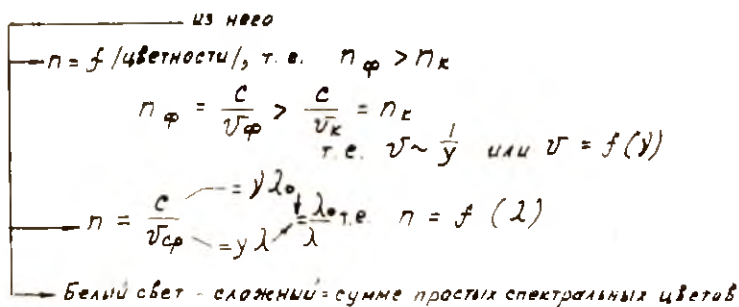 из него
n = f /цветности/, т.е. n_ф > n_к
n_ф = c/v_ф > c/v_к = n_к
т.е. v ~ 1/γ или v = f(γ)
n = c/v_ср = γλ₀ = γλ = λ₀/λ т.е. n = f (λ)
Белый свет - сложный = сумме простых спектральных цветов